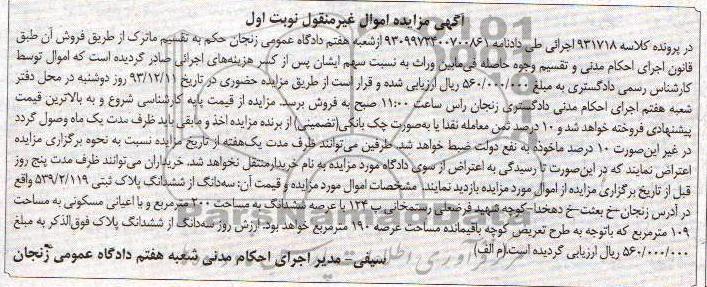 آگهی مزایده اموال غیرمنقول نوبت اول
در پرونده کلاسه ۹۳۱۷۱۸ اجرائی طی دادنامه ۹۳۰۹۹۷۲۴۰۰۷۰۰۸۶۱ ازشعبه هفتم دادگاه عمومی زنجان حکم به تقسیم ماترک از طریق فروش آن طبق
قانون اجرای احکام مدنی و تقسیم وجوه حاصله فی‌مابین وراث به نسبت سهم ایشان پس از کسر هزینه‌های اجرائی صادر گردیده است که اموال توسط
کارشناس رسمی دادگستری به مبلغ ۵۶۰/۰۰۰/۰۰۰ ریال ارزیابی شده و قرار است از طریق مزایده حضوری در تاریخ ۹۳/۱۲/۱۱ روز دوشنبه در محل دفتر
شعبه هفتم اجرای احکام مدنی دادگستری زنجان راس ساعت ۱۱:۰۰ صبح به فروش برسد. مزایده از قیمت پایه کارشناسی شروع و به بالاترین قیمت
پیشنهادی فروخته خواهد شد و ۱۰ درصد ثمن معامله نقدا یا به‌صورت چک بانکی(تضمینی) از برنده مزایده اخذ و مابقی باید ظرف مدت یک ماه وصول گردد
در غیر این‌صورت ۱۰ درصد ماخوذه به نفع دولت ضبط خواهد شد. طرفین می‌توانند ظرف مدت یک‌هفته از تاریخ مزایده نسبت به نحوه برگزاری مزایده
اعتراض نمایند که در این‌صورت تا رسیدگی به اعتراض از سوی دادگاه مورد مزایده به نام خریدارمنتقل نخواهد شد. خریداران می‌توانند ظرف مدت پنج روز
قبل از تاریخ برگزاری مزایده از اموال مورد مزایده بازدید نمایند. مشخصات اموال مورد مزایده و قیمت آن: سه‌دانگ از ششدانگ پلاک ثبتی ۵۳۹/۲/۱۱۹ واقع
در آدرس زنجان-خ بعثت-خ دهخدا-کوچه شهید فرضعلی رستمخانی-پ ۱۲۴ با عرصه ششدانگ به مساحت ۲۰۰ مترمربع و با اعیانی مسکونی به مساحت
۱۰۹ مترمربع که باتوجه به طرح تعریض کوچه باقیمانده مساحت عرصه ۱۹۰ مترمربع خواهد بود. ارزش روز سه‌دانگ از ششدانگ پلاک فوق‌الذکر به مبلغ
۵۶۰/۰۰۰/۰۰۰ ریال ارزیابی گردیده است.(م الف)
سیفی- مدیر اجرای احکام مدنی شعبه هفتم دادگاه عمومی زنجان
ParsNamadData